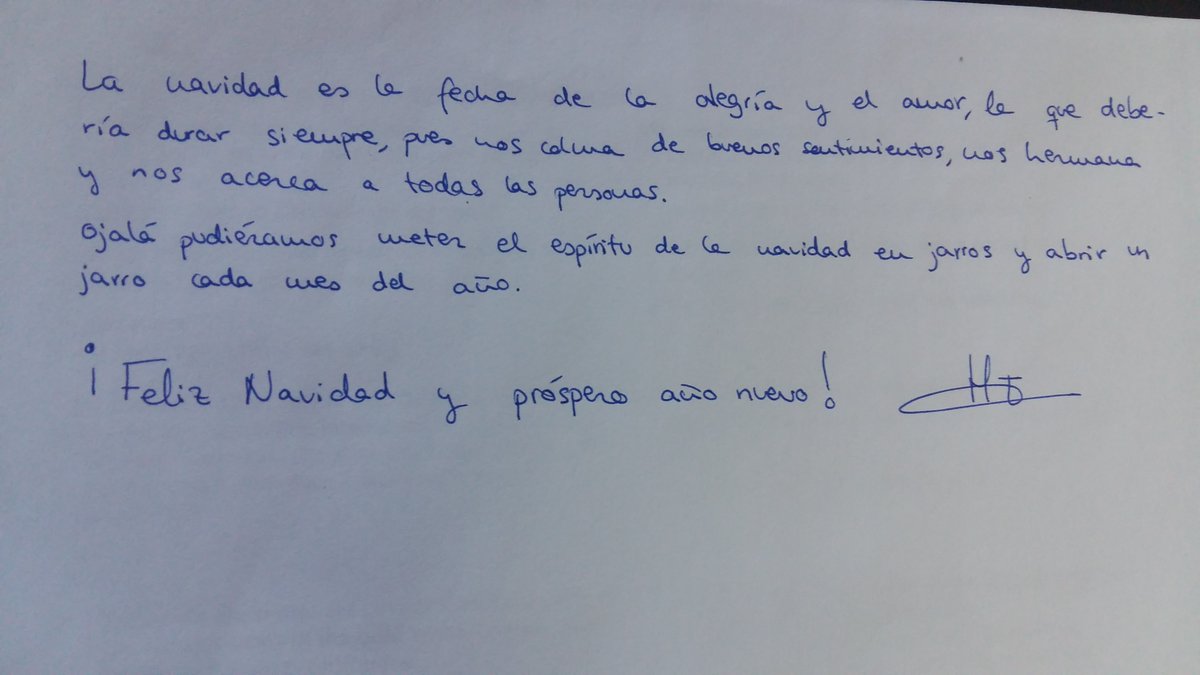 La navidad es la fecha de la alegría y el amor, la que debe-
ría durar siempre, pues nos colma de buenos sentimientos, nos hermana
y nos acerca a todas las personas.
Ojalá pudiéramos meter el espíritu de la navidad en jarros y abrir un
jarro cada mes del año.
¡Feliz Navidad y próspero año nuevo!